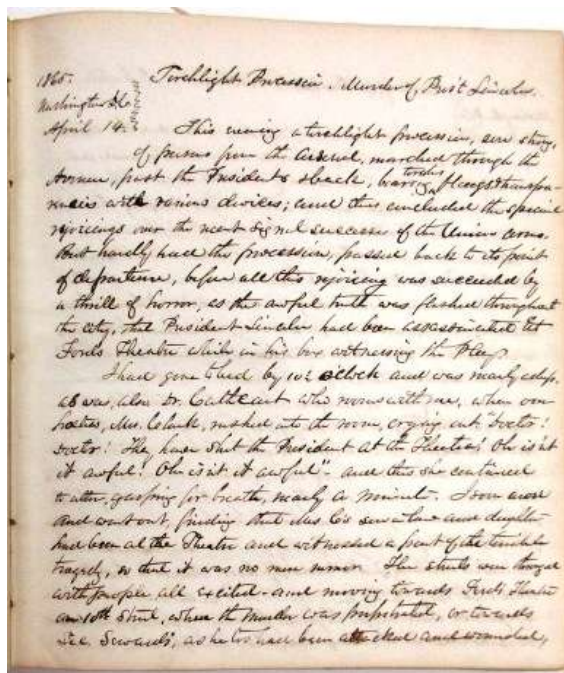 1865.
Torchlight Procession. Murder of Pres't Lincoln.
Washington D.C.
April 14.
This evening a torchlight procession, some strong,
of persons from the Arsenal, marched through the
Avenue, past the President's & back, bearing torches, flags & transpa-
rencies with various devices; and thus concluded the special
rejoicings over the recent signal successes of the Union arms.
But hardly had this procession, passed back to its point
of departure, before all this rejoicing was succeeded by
a thrill of horror, as the awful truth was flashed throughout
the city, that President Lincoln had been assassinated at
Fords Theatre while in his box witnessing the Play.
I had gone to bed by 10½ o'clock and was nearly asleep.
as was, also Dr. Cathcart who rooms with me, when our
hostess, Mrs. Clark, rushed into the room, crying out "Doctor!
Doctor! They have shot the President at the Theatre! Oh is'nt
it awful! Oh is'nt it awful" - and this she continued
to utter, gasping for breath, nearly a minute. I soon arose
and went out, finding that Mrs C's son in law and daughter
had been at the Theatre and witnessed a part of the terrible
tragedy, so that it was no mere rumor. The streets were thronged
with people all excited - and moving towards Ford's Theatre
on 10th Street, where the murder was perpetrated, or towards
Sec. Seward's, as he too had been attacked and wounded,